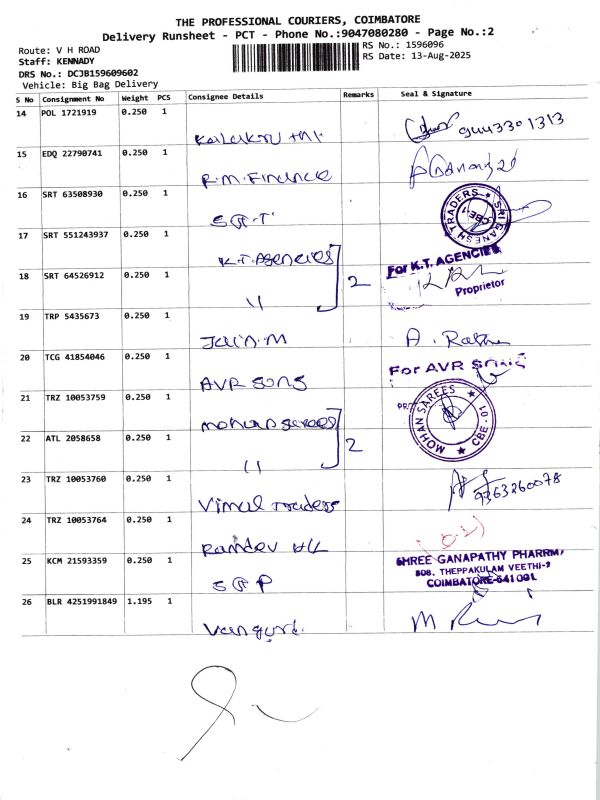 THE PROFESSIONAL COURIERS, COIMBATORE
Delivery Runsheet - PCT - Phone No.:9047080280 - Page No.:2
Route: V H ROAD
RS No.: 1596096
Staff: KENNADY
RS Date: 13-Aug-2025
DRS No.: DCJB159609602
Vehicle: Big Bag Delivery
S No Consignment No Weight PCS Consignee Details Remarks Seal & Signature
14 POL 1721919 0.250 1
15 EDQ 22790741 0.250 1 R.M. Finance
16 SRT 63508930 0.250 1 SRI GANESH TRADERS CBE-1
17 SRT 551243937 0.250 1 K.T. Agencies For K.T. AGENCIES
18 SRT 64526912 0.250 1 11 2 Proprietor
19 TRP 5435673 0.250 1 Jain.M
20 TCG 41854046 0.250 1 AVR Sons For AVR SONS
21 TRZ 10053759 0.250 1 mohan sarees MOHAN SAREES CBE-01
22 ATL 2058658 0.250 1 11 2
23 TRZ 10053760 0.250 1 Vimal Traders 9363260078
24 TRZ 10053764 0.250 1 Ramdev
25 KCM 21593359 0.250 1 SGP SHREE GANAPATHY PHARRM
808, THEPPAKULAM VEETHI-2
COIMBATORE-641 001.
26 BLR 4251991849 1.195 1